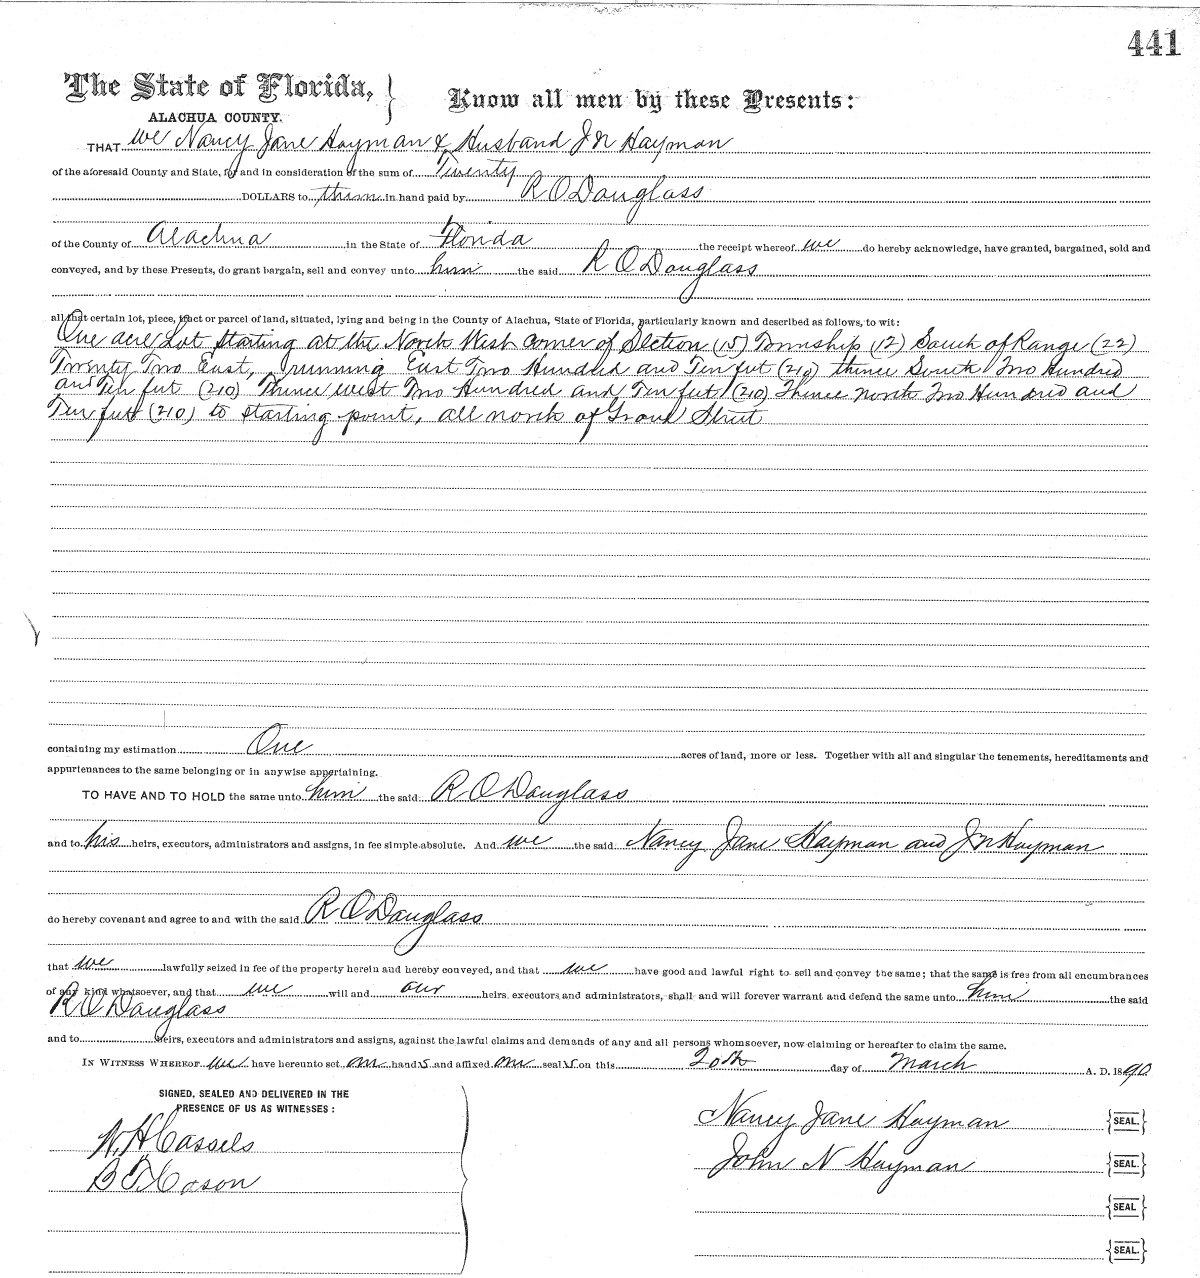 441
The State of Florida, } Know all men by these Presents:
ALACHUA COUNTY.
THAT we Nancy Jane Hayman & Husband J N Hayman
of the aforesaid County and State, for and in consideration of the sum of Twenty
DOLLARS to them in hand paid by R O Douglass
of the County of Alachua in the State of Florida the receipt whereof we do hereby acknowledge, have granted, bargained, sold and
conveyed, and by these Presents, do grant bargain, sell and convey unto him the said R O Douglass
all that certain lot, piece, tract or parcel of land, situated, lying and being in the County of Alachua, State of Florida, particularly known and described as follows, to wit:
One acre Lot starting at the North West corner of Section (15) Township (12) South of Range (22)
Twenty Two East, running East Two Hundred and Ten feet (210) thence South Two Hundred
and Ten feet (210) Thence west Two Hundred and Ten feet (210) Thence north Two Hundred and
Ten feet (210) to starting point, all north of Street
containing my estimation One acres of land, more or less. Together with all and singular the tenements, hereditaments and
appurtenances to the same belonging or in anywise appertaining.
TO HAVE AND TO HOLD the same unto him the said R O Douglass
and to his heirs, executors, administrators and assigns, in fee simple absolute. And we the said Nancy Jane Hayman and J N Hayman
do hereby covenant and agree to and with the said R O Douglass
that we lawfully seized in fee of the property herein and hereby conveyed, and that we have good and lawful right to sell and convey the same; that the same is free from all encumbrances
of any kind whatsoever, and that we will and our heirs, executors and administrators, shall and will forever warrant and defend the same unto him the said
R O Douglass
and to heirs, executors and administrators and assigns, against the lawful claims and demands of any and all persons whomsoever, now claiming or hereafter to claim the same.
IN WITNESS WHEREOF we have hereunto set our hands and affixed our seals on this 20th day of March A. D. 1890
SIGNED, SEALED AND DELIVERED IN THE
PRESENCE OF US AS WITNESSES:
Nancy Jane Hayman {SEAL.}
N. H Cassels
John N Hayman {SEAL.}
B T Cason
{SEAL.}
{SEAL.}